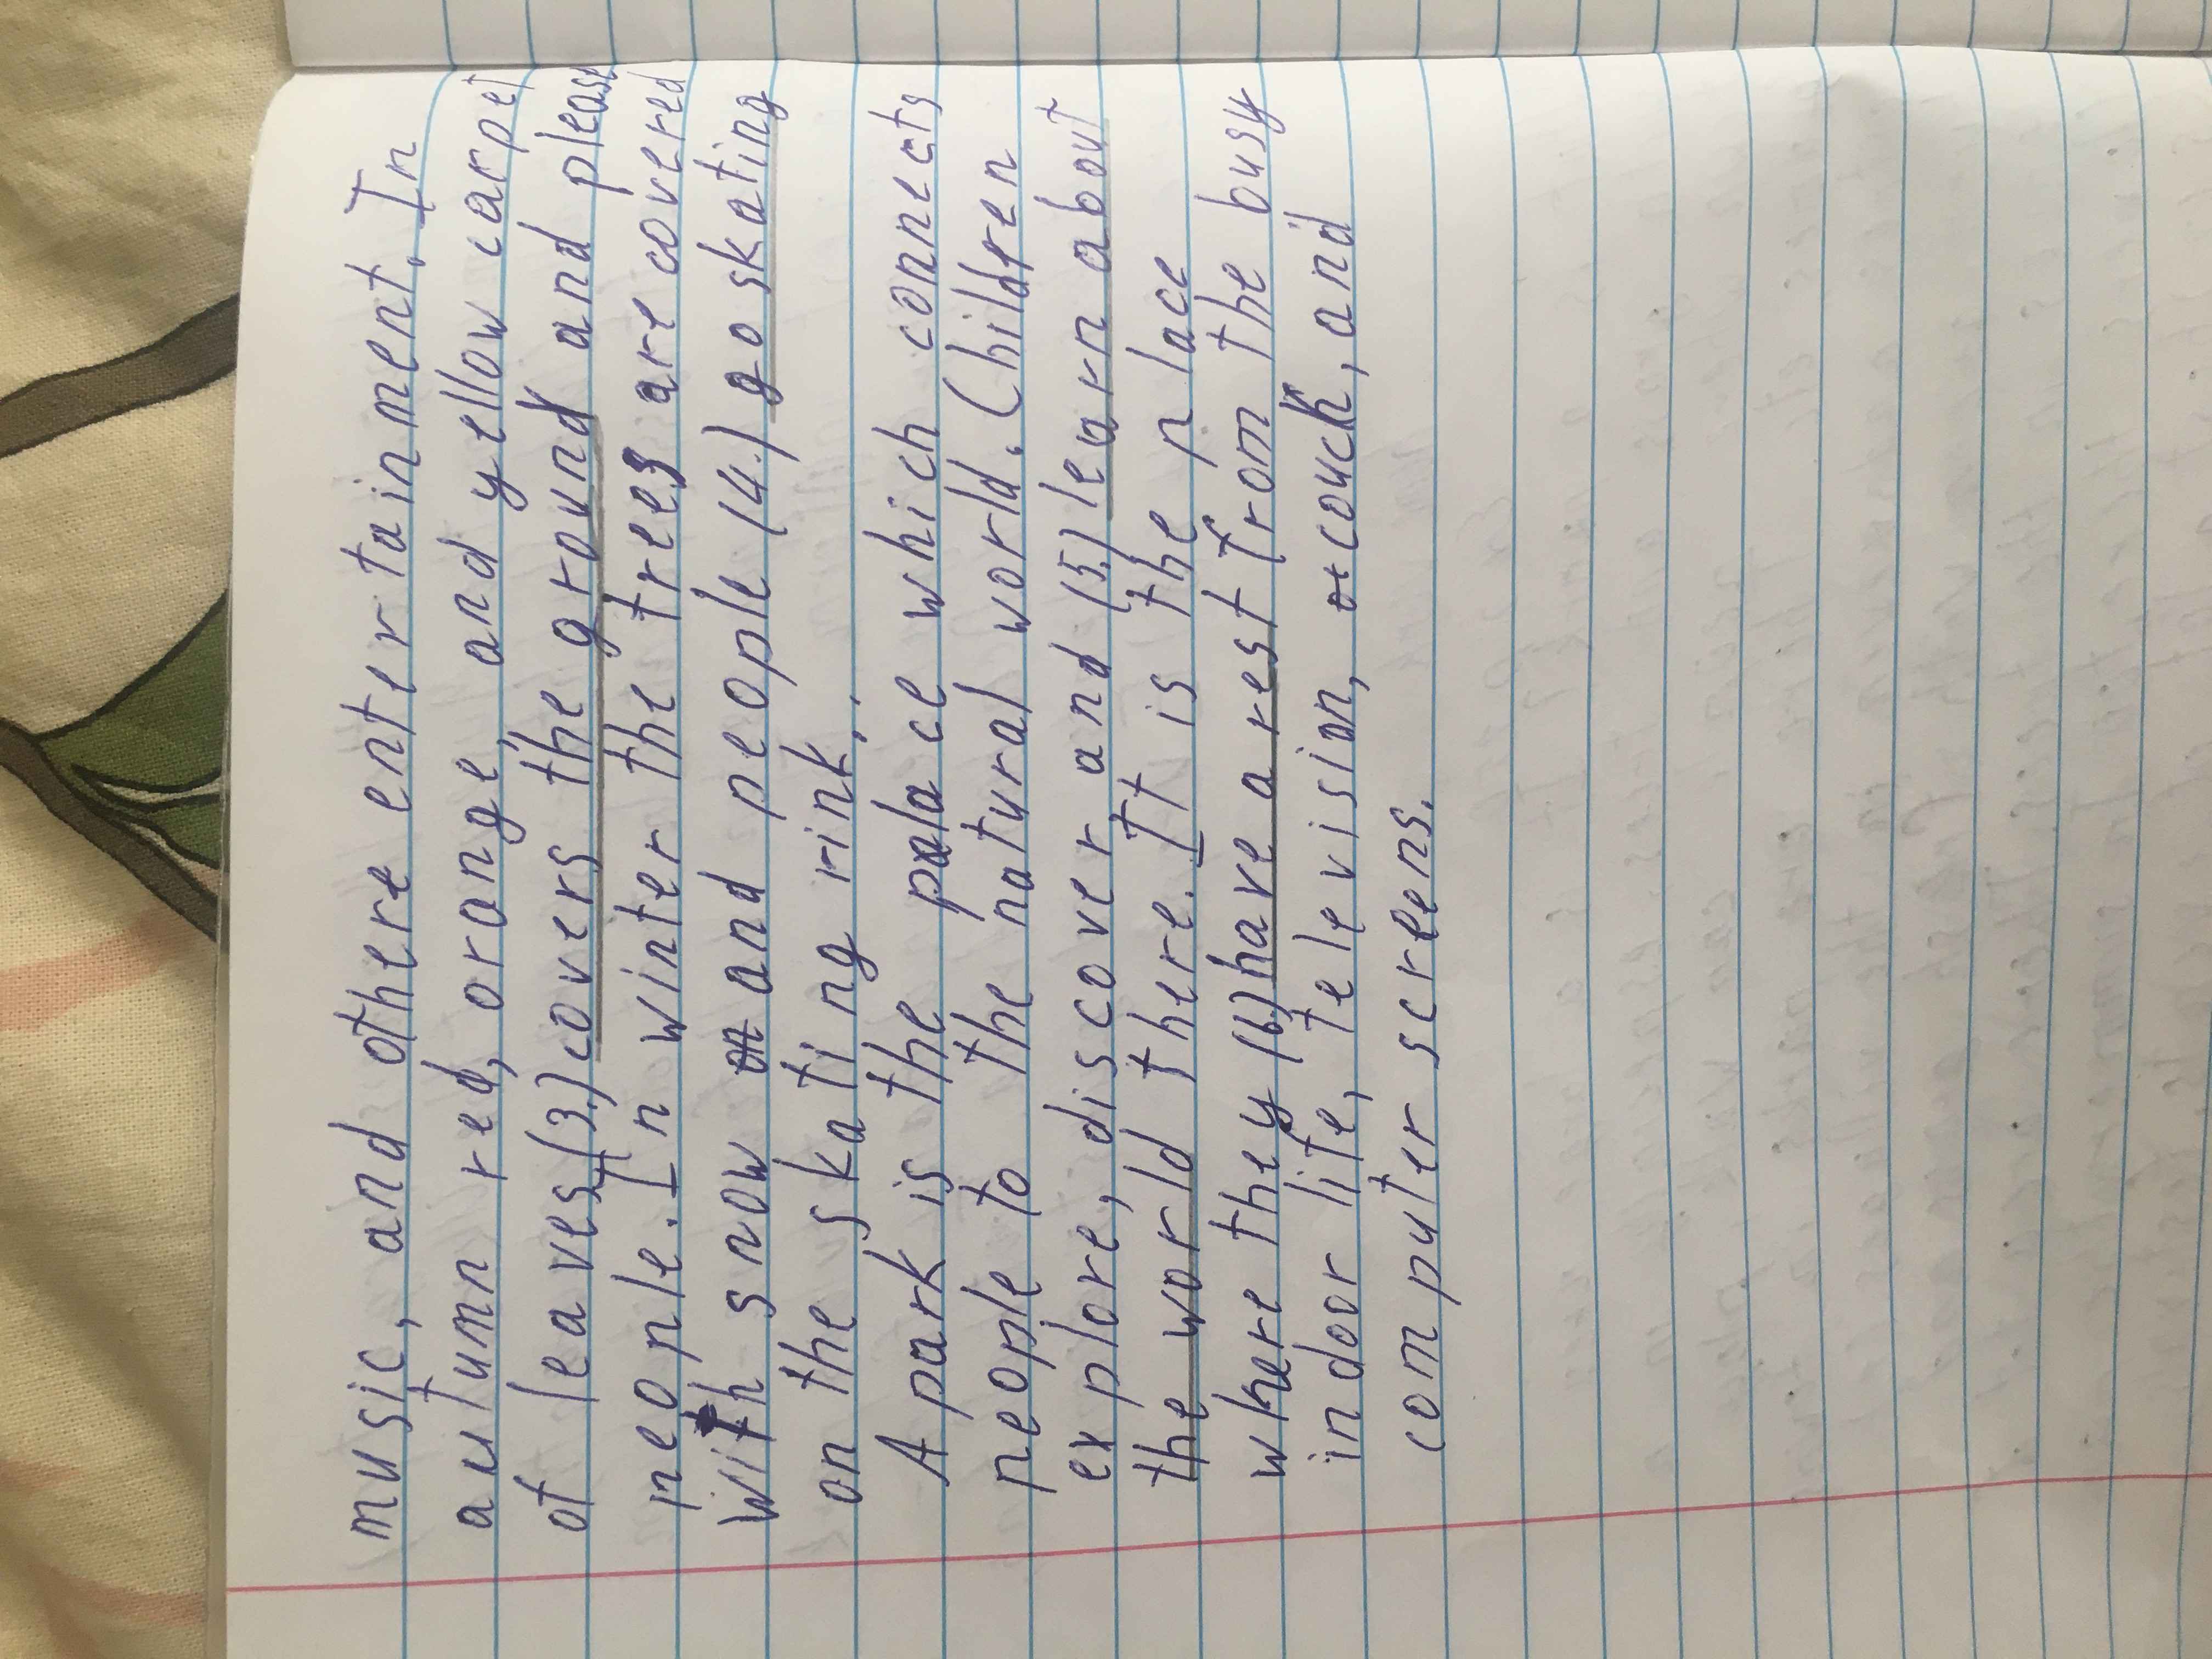 music, and othere entertainment. In
autumn red, orange, and yellow carpet
of leaves (3.) covers the ground and please
people. In winter the trees are covered
with snow and people (4.) go skating
on the skating rink.
A park is the palace which connects
people to the natural world. Children
explore, discover and (5.) learn about
the world there. It is the place
where they (6) have a rest from the busy
indoor life, television, couck, and
computer screens.